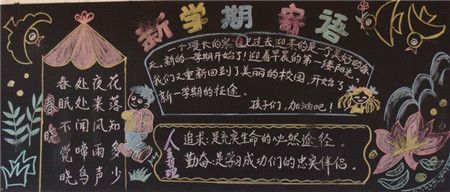 新学期寄语
一个漫长的寒假已过去,迎来的是一个美好的春
天,新的一学期开始了!迎着早晨的第一缕阳光,
我们又重新回到了美丽的校园,开始了
新一学期的征途。
孩子们,加油吧!
春晓
春眠不觉晓
处处闻啼鸟
夜来风雨声
花落知多少
人生
追求:是充实生命的必然途径。
勤奋:是学习成功们的忠实伴侣。